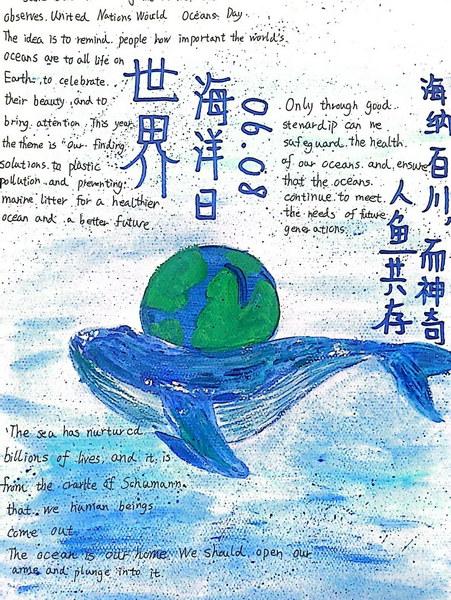 observes United Nations Would Oceans Day
The idea is to remind people how important the world's
oceans are to all life on
Earth. to celebrate.
their beauty and to
bring attention. This year,
the theme is "Our finding
solutions to plastic
pollution and preventing
marine litter for a healthier
ocean and a better future
世界
海洋日
06.08
Only through good
stenardip can we
safeguard the health
of our oceans and ensure
that the oceans
continue to meet
the needs of future
generations
海纳百川，而神奇
人鱼共存
The sea has nurtured
billions of lives, and it is
from the cradle of Schumann
that we human beings
come out
The ocean is our home. We should open our
arms and plunge into it.